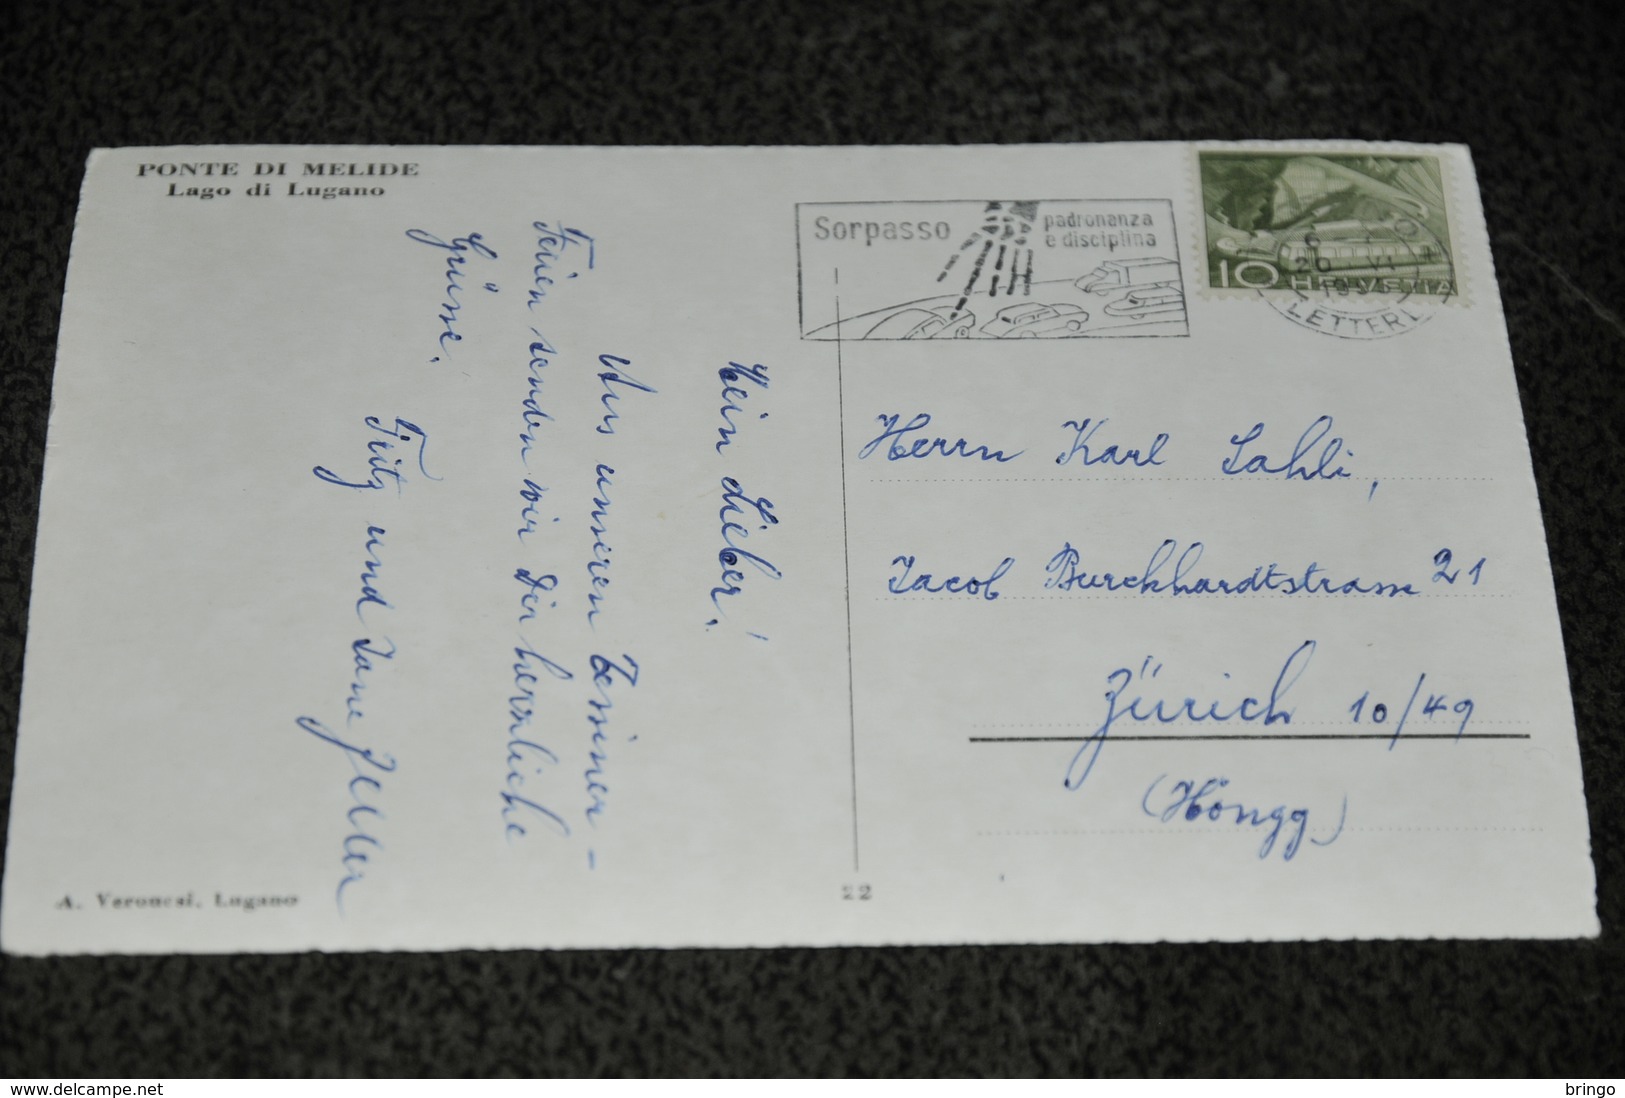 PONTE DI MELIDE
Lago di Lugano
Mein Lieber!
Aus unseren Tessiner-
Ferien senden wir Dir herzliche
Grüsse.
Fritz und
A. Veronesi, Lugano
22
Sorpasso
padronanza
e disciplina
10 HELVETIA
20 VI
LETTERE
Herrn Karl Sahli,
Jacob Burckhardtstrasse 21
Zürich 10/49
(Höngg)
www.delcampe.net
bringo